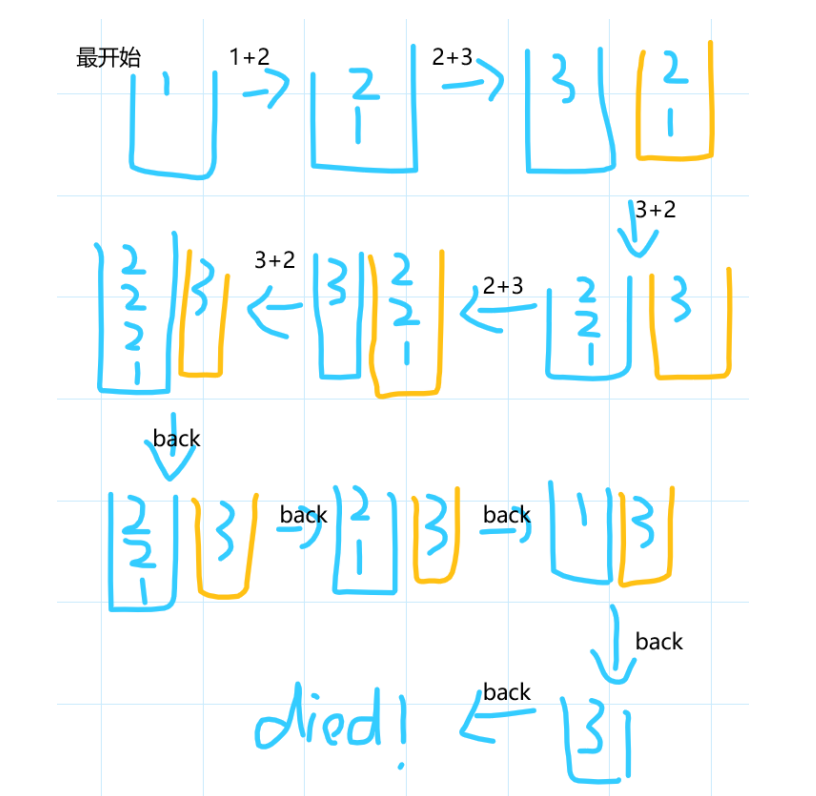 最开始
1
1+2
2
1
2+3
3
2
1
3+2
2
2
1
3
2+3
3
2
2
1
3+2
2
2
2
1
3
back
2
2
1
3
back
2
1
3
back
1
3
back
3
back
died!